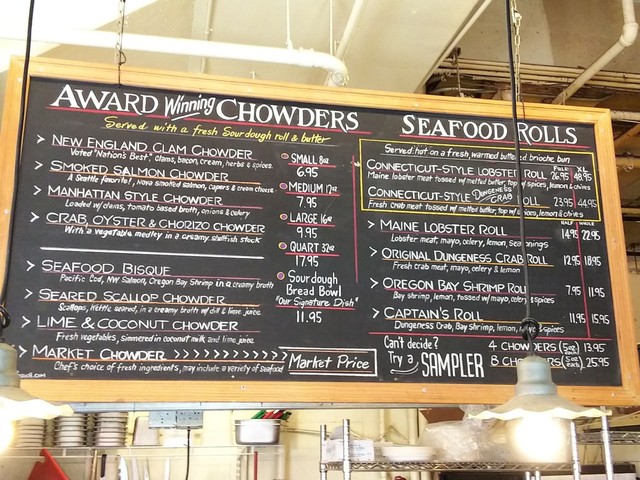 AWARD Winning CHOWDERS
Served with a fresh Sourdough roll & butter
> NEW ENGLAND CLAM CHOWDER
Voted "Nation's Best," clams, bacon, cream, herbs & spices.
> SMOKED SALMON CHOWDER
A Seattle favorite!, Nova smoked salmon, capers & cream cheese
> MANHATTAN STYLE CHOWDER
Loaded w/ clams, tomato based broth, onions & celery
> CRAB, OYSTER & CHORIZO CHOWDER
With a vegetable medley in a creamy shellfish stock
> SEAFOOD BISQUE
Pacific Cod, NW Salmon, Oregon Bay Shrimp in a creamy broth
> SEARED SCALLOP CHOWDER
Scallops, in a creamy broth w/ dill & lime juice
> LIME & COCONUT CHOWDER
Fresh vegetables, simmered in coconut milk and lime juice.
> MARKET CHOWDER >>>>>>>>>>>> Market Price
Chef's choice of fresh ingredients, may include a variety of seafood
SMALL 8oz
6.95
MEDIUM 12oz
7.95
LARGE 16oz
9.95
QUART 32oz
17.95
Sourdough
Bread Bowl
"Our Signature Dish"
11.95
SEAFOOD ROLLS
Served hot on a fresh, warmed buttered brioche bun
CONNECTICUT-STYLE LOBSTER ROLL
Maine lobster meat tossed w/ melted butter, top w/ spices, lemon & chives
CONNECTICUT-STYLE DUNGENESS CRAB ROLL 23.95 44.95
Fresh crab meat tossed w/ melted butter, top w/ spices, lemon & chives
HALF WHOLE
> MAINE LOBSTER ROLL 14.95 22.95
Lobster meat, mayo, celery, lemon, seasonings
> ORIGINAL DUNGENESS CRAB ROLL 12.95 18.95
Fresh crab meat, mayo, celery & lemon
> OREGON BAY SHRIMP ROLL 7.95 11.95
Bay shrimp, lemon, tossed w/ mayo, celery & spices
> CAPTAIN'S ROLL 11.95 15.95
Dungeness Crab, Bay Shrimp, lemon, mayo & spices
Can't decide?
Try a SAMPLER
4 CHOWDERS (5oz each) 13.95
8 CHOWDERS (5oz each) 25.95